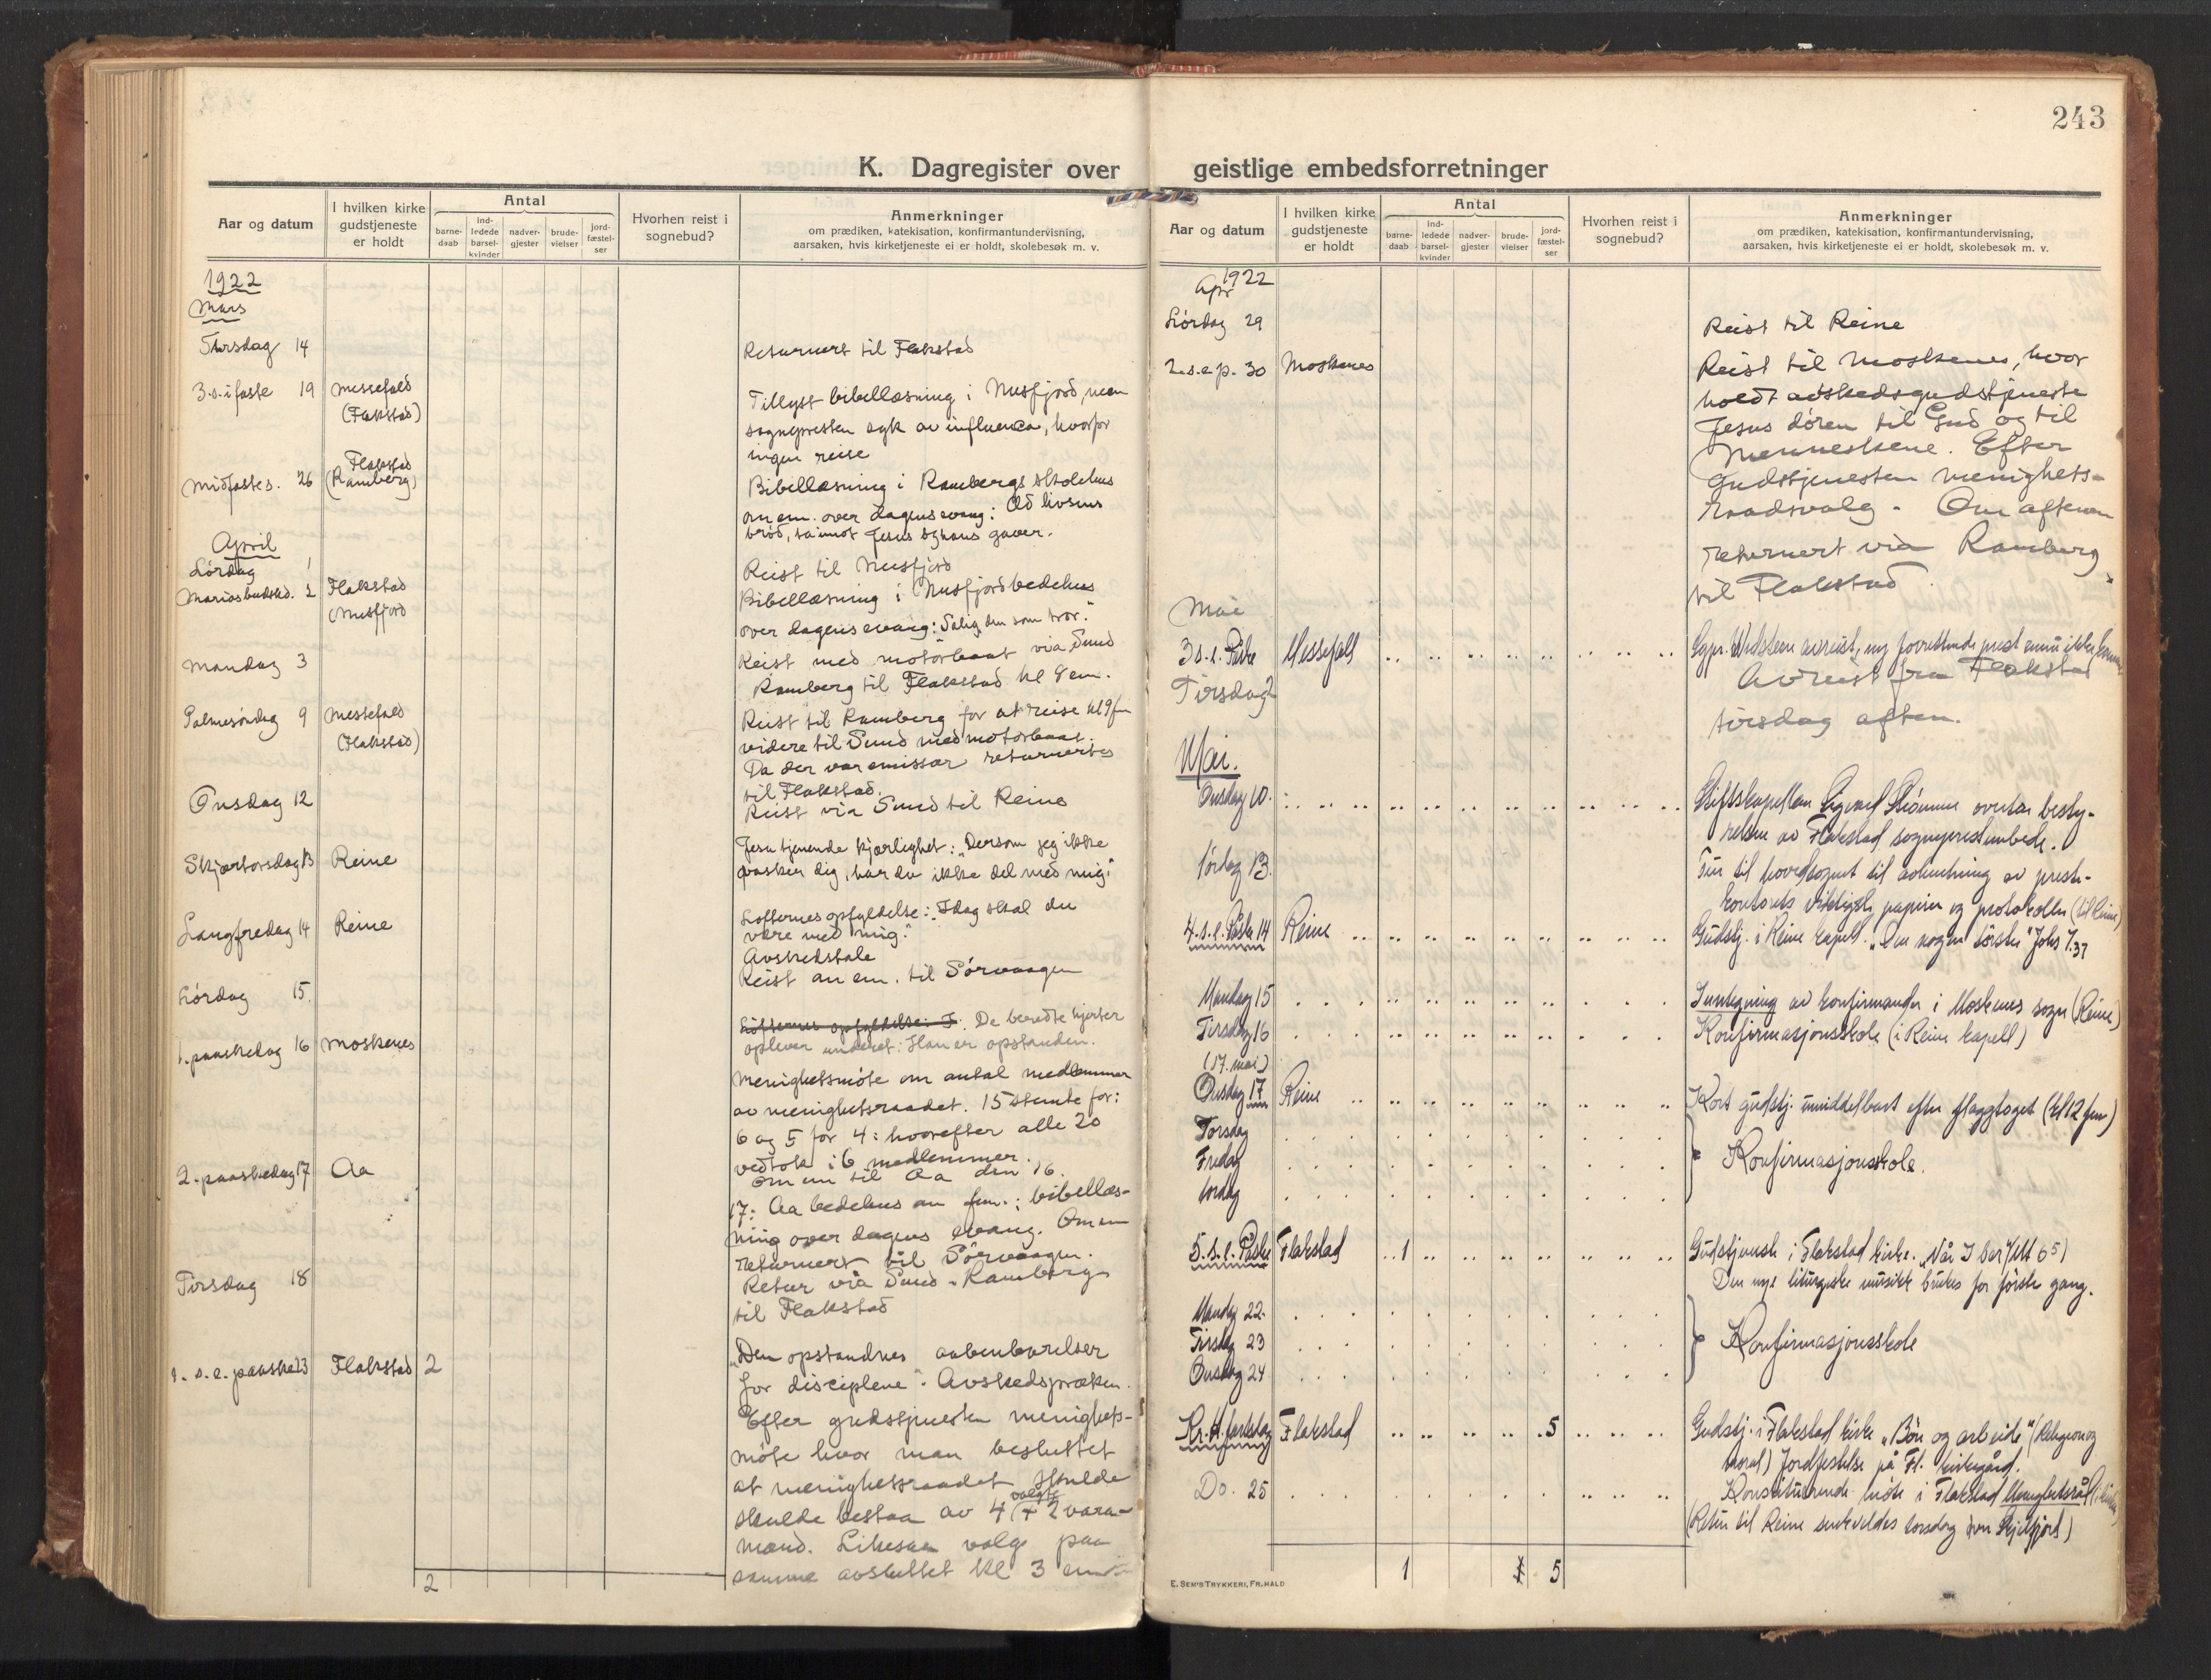 243
K. Dagregister over
geistlige embedsforretninger
Aar og datum
I hvilken kirke
gudstjeneste
er holdt
Antal
barne-
daab
ind-
ledede
barsel-
kvinder
nadver-
gjester
brude-
vielser
jord-
fæstel-
ser
Hvorhen reist i
sognebud?
Anmerkninger
om prædiken, katekisation, konfirmantundervisning,
aarsaken, hvis kirketjeneste ei er holdt, skolebesøk m. v.
1922
Mars
Tirsdag 14 Returnert til Flakstad
3.s. i faste 19 Messefald Tillyst bibellæsning i Nusfjord, men
(Flakstad) sognepresten syk av influenca, hvorfor
ingen reise
Midfastes. 26 Flakstad Bibellæsning i Rambergs skolehus
(Ramberg) om em. over dagens evang: Æd livsens
brød, ta imot Jesus og hans gaver.
April
Lørdag 1 Reist til Nusfjord
Mariæ budskd. 2 Flakstad Bibellæsning i Nusfjord bedehus
(Nusfjord over dagens evang: Salig den som tror."
Mandag 3 Reist med motorbaat via Sund
Ramberg til Flakstad kl 8 em.
Palmesøndag 9 Messefald Reist til Ramberg for at reise kl 9 fm
(Flakstad) videre til Sund med motorbaat.
Da der var emissær returnertes
til Flakstad.
Onsdag 12 Reist via Sund til Reine
Skjærtorsdag 13 Reine Jesu tjenende kjærlighet: "Dersom jeg ikke
vasker dig, har du ikke del med mig."
Langfredag 14 Reine Løfternes opfyldelse: "Idag skal du
være med mig."
Avskedstale
Lørdag 15. Reist om em. til Sørvaagen
Løfternes opfyldelse: I. De beredte hjerter
1. paaskedag 16 Moskenes oplever underet: Han er opstanden.
Menighetsmøte om antal medlemmer
av menighetsraadet. 15 stemte for:
6 og 5 for 4: hvorefter alle 20
vedtok i 6 medlemmer.
2. paaskedag 17 Aa Om em til Aa den 16.
17: Aa bedehus om fm.: bibellæs-
ning over dagens evang. Om em
returnert til Sørvaagen.
Tirsdag 18 Retur via Sund - Ramberg
til Flakstad
1. s. e. paaske 23 Flakstad 2 "Den opstandnes aabenbarelser
for disciplene". Avskedspræken.
Efter gudstjenesten menighets-
møte hvor man besluttet
at menighetsraadet skulde
skulde bestaa av 4 valgte + 2 vara-
mænd. Likesaa valg paa
samme avsluttet kl 3 em
2
Aar og datum
I hvilken kirke
gudstjeneste
er holdt
Antal
barne-
daab
ind-
ledede
barsel-
kvinder
nadver-
gjester
brude-
vielser
jord-
fæstel-
ser
Hvorhen reist i
sognebud?
Anmerkninger
om prædiken, katekisation, konfirmantundervisning,
aarsaken, hvis kirketjeneste ei er holdt, skolebesøk m. v.
1922
Apr
Lørdag 29 Reist til Reine
2.s.e.p. 30 Moskenes Reist til Moskenes, hvor
holdt avskedsgudstjeneste
Jesus døren til Gud og til
Menneskene. Efter
Gudstjenesten menighets-
raadsvalg. Om aftenen
returnert via Ramberg
til Flakstad.
Mai
3 s.e. Påske Messefall Sgpr. avreist, ny forrettende prest ennu ikke kommen
Tirsdag 2 Avreist fra Flakstad
tirsdag aften.
Mai.
Onsdag 10. Stiftskapellan Sigvard overtar besty-
relsen av Flakstad sogneprestembede.
Lørdag 13. Tur til hovedsognet til avhentning av preste-
kontorets viktigste papirer og protokoller (til Reine)
4. s.e. Påske 14 Reine Gudstj. i Reine kapell. "Om nogen tørster" Johs 7.37
Mandag 15 Innlegning av konfirmander i Moskenes sogn (Reine)
Tirsdag 16 Konfirmasjonsskole (i Reine kapell)
(17. mai)
Onsdag 17 Reine Kort gudstj. umiddelbart efter flaggtoget (kl 12 fm)
Torsdag
Fredag Konfirmasjonsskole.
Lørdag
5. s. e. Påske Flakstad 1 Gudstjeneste i Flakstad kirke. "Når I ber" (Mt 6 5)
Den nye liturgiske musikk brukes for første gang.
Mandag 22.
Tirsdag 23 Konfirmasjonsskole
Onsdag 24
Kr. H. fartsdag Flakstad 5 Gudstj. i Flakstad kirke "Bøn og arbeide" (Religion og
moral) Jordfestelse på Fl. kirkegård.
Do. 25 Konstituerende møte i Flakstad Menighetsråd (i kirken)
(Retur til Reine senkveldes torsdag over Skjelfjord)
1 1 5
E. SEM'S TRYKKERI, FR.HALD